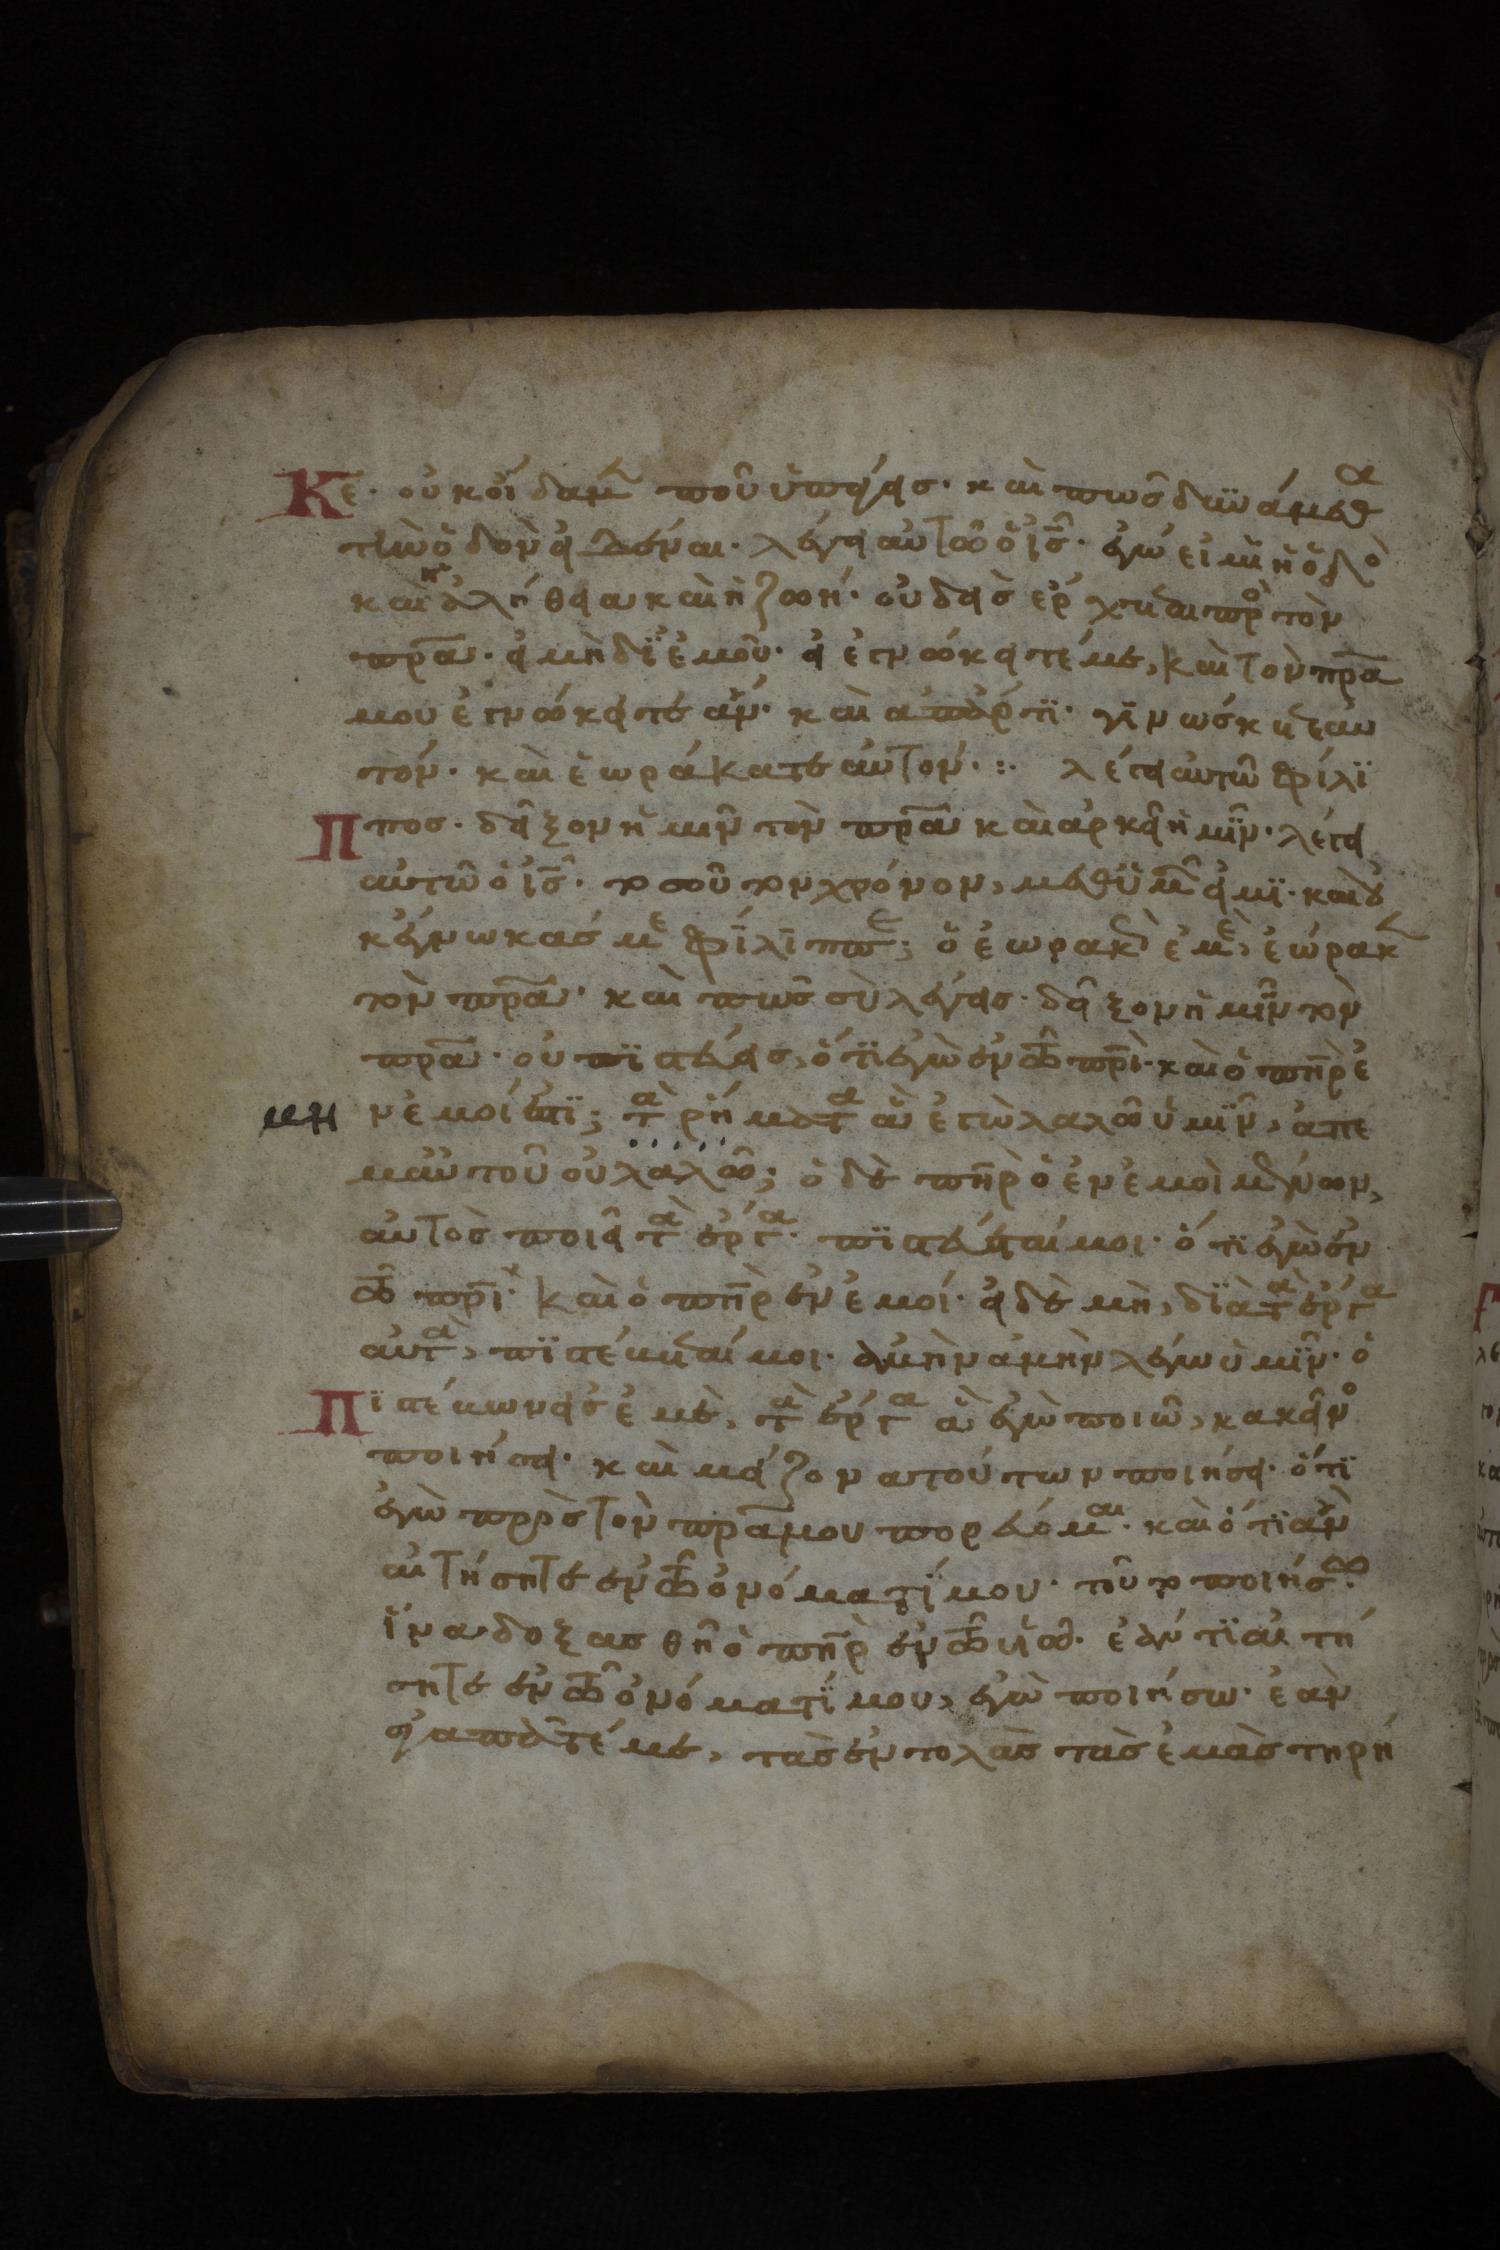 Κε· οὐκ οἴδαμεν ποῦ ὑπάγεις· καὶ πῶς δυνάμεθα
τὴν ὁδὸν εἰδέναι· λέγει αὐτῶ ὁ ἰς· ἐγώ εἰμι ἡ ὁδὸ
καὶ ἡ ἀλήθεια καὶ ἡ ζωή· οὐδεὶς ἔρχεται πρὸ τὸν
πρα· εἰ μὴ δϊ ἐμοῦ· εἰ ἐγνώκειτέ με, καὶ τὸν πρα
μου ἐγνώκειτε ἄν· καὶ απάρτϊ· γϊνώσκεται αυ
τόν· καὶ ἑωράκατε αὐτόν· :· λέγει αὐτῶ φίλϊ
Ππος· δεῖξον ἡμῖν τὸν πρα καὶ ἀρκεῖ ἡμῖν· λέγει
αὐτῶ ὁ ις· τοσοῦτον χρόνον, μεθ ὑμῶν εἰμϊ· καὶ οὐ
κ ἔγνωκάς με φίλιππε; ὁ ἑωρακὼ ἐμὲ, ἑώρακεν
τὸν πρα· καὶ πῶς σὺ λέγεις· δεῖξον ἡμῖν τὸν
πρα· οὐ πϊστεύεις, ὅτϊ ἐγὼ ἐν τῶ πρι· καὶ ὁ πηρ ἐ
μη ν ἐμοί ἐστϊ; τὰ ῥήματα ἃ ἐγὼ λαλῶ ὑμῖν, ἀπ ε
μαὐτοῦ οὐ λαλῶ; ὁ δὲ πηρ ὁ ἐν ἐμοὶ μένων,
αὐτὸς ποιεῖ τὰ ἔργα· πϊστεύεταί μοι· ὅτϊ ἐγὼ ἐν
τῶ πρι· καὶ ὁ πηρ ἐν ἐμοί· εἰ δὲ μὴ, δϊὰ τὰ ἔργα
αὐτὰ, πϊστεύεταί μοι· ἀμὴν ἀμὴν λέγω ὑμῖν· ὁ
Πϊστεύων εἰς ἐμὲ, τὰ ἔργα ἃ ἐγὼ ποιῶ, κακεῖνο
ποιήσει· καὶ μείζονα τούτων ποιήσει· ὅτϊ
ἐγὼ πρὸς τὸν πρα μου πορεύομαι· καὶ ὅτϊ ἂν
αἰτήσητε ἐν τῶ ὀνόματϊ μου· τοῦτο ποιήσω·
ἵνα δοξασθῆ ὁ πηρ ἐν τῶ υἱῶ· ἐάν τϊ αἰτή
σητε ἐν τῶ ὀνόματϊ μου, ἐγὼ ποιήσω· ἐὰν
ἀγαπᾶτέ με, τὰς ἐντολὰς τὰς ἐμὰς τηρή